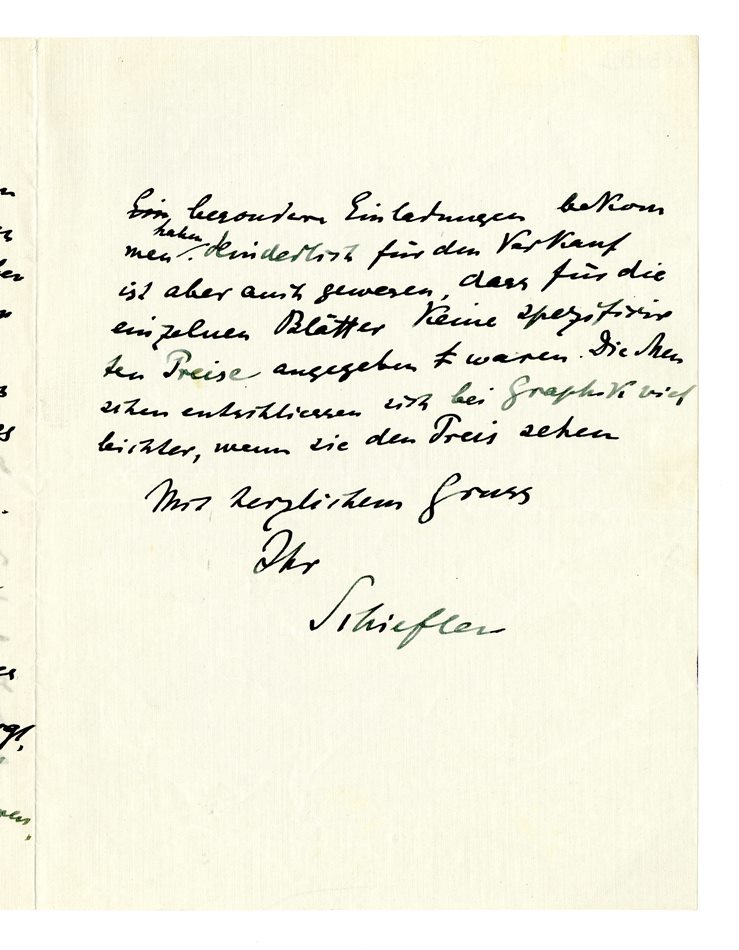 Ein besondere Einladungen bekom
men haben. Hinderlich für den Verkauf
ist aber auch gewesen, dass für die
einzelnen Blätter keine spezifizir
ten Preise angegeben waren. Die Men
schen entschliessen sich bei Graphik viel
leichter, wenn sie den Preis sehen
Mit herzlichem Gruss
Ihr
Schiefler